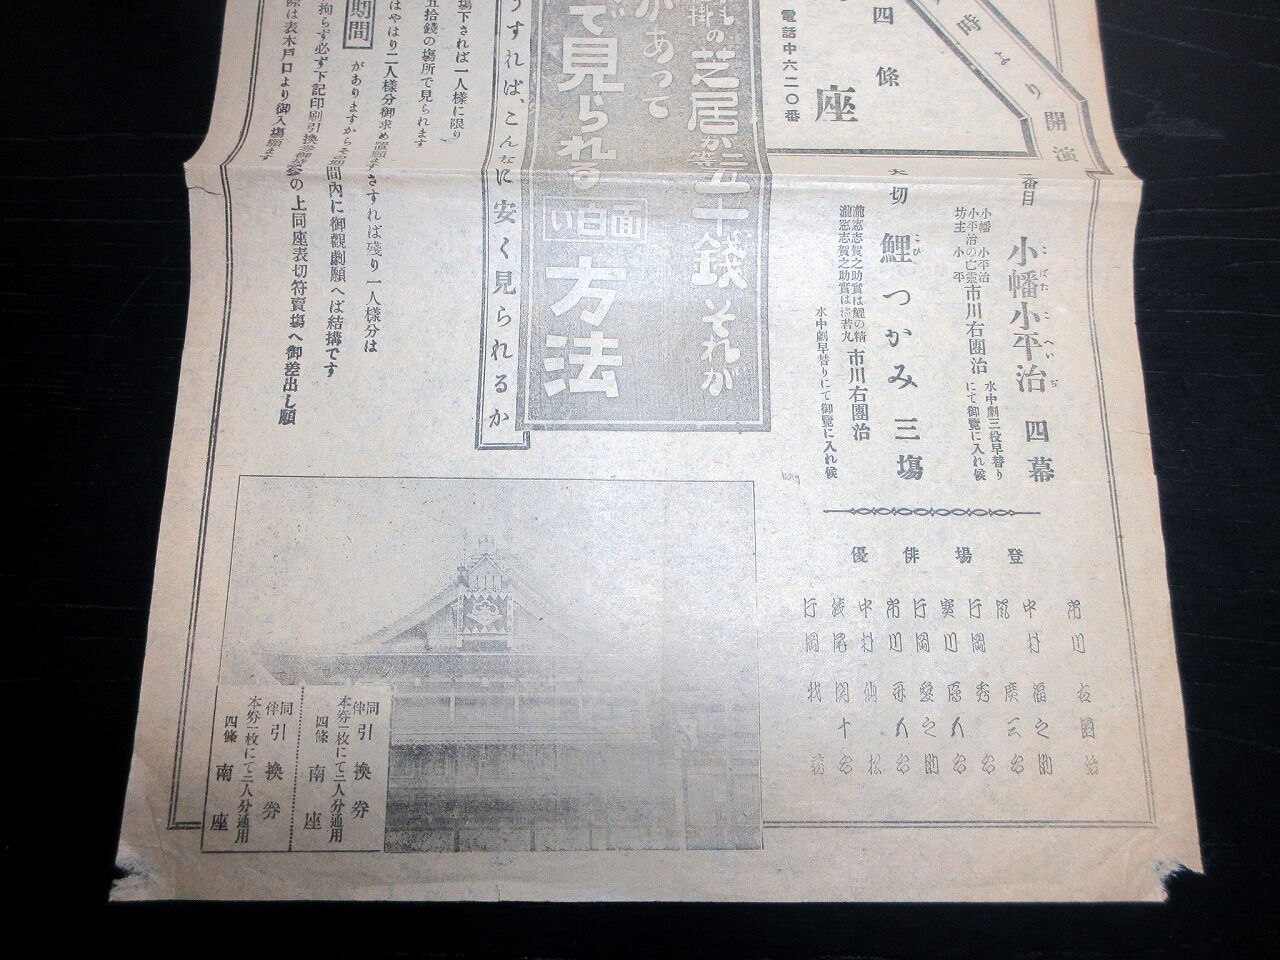 時より開演
四條
座
電話中六二〇番
番目
小幡小平治 四幕
こばた こへいぢ
小幡 小平治
小平治の亡霊
坊主 小平
市川右團治
水中劇三役早替り
にて御覽に入れ候
大切
鯉つかみ 三塲
こひ
瀧窓志賀之助實は鯉の精
瀧窓志賀之助實は
市川右團治
水中劇早替りにて御覽に入れ候
登場俳優
市川右團治
中村福之助
廣三郎
行岡秀
中村仙松
芝居が
五十錢それが
があって
て見られる
面白い
方法
うすれば、こんなに安く見られるか
塲下されば一人樣に限り
五拾錢の塲所で見られます
はやはり二人樣分御求め置願ます
さすれば殘り一人樣分は
期間
がありますからその期間内に御觀劇願へば結搆です
拘らず必ず下記印刷引換劵御持參の上同座表切符賣塲へ御差出し願
際は表木戸口より御入塲願ます
同伴 引換劵
本劵一枚にて二人分通用
四條 南座
同伴 引換劵
本劵一枚にて二人分通用
四條 南座